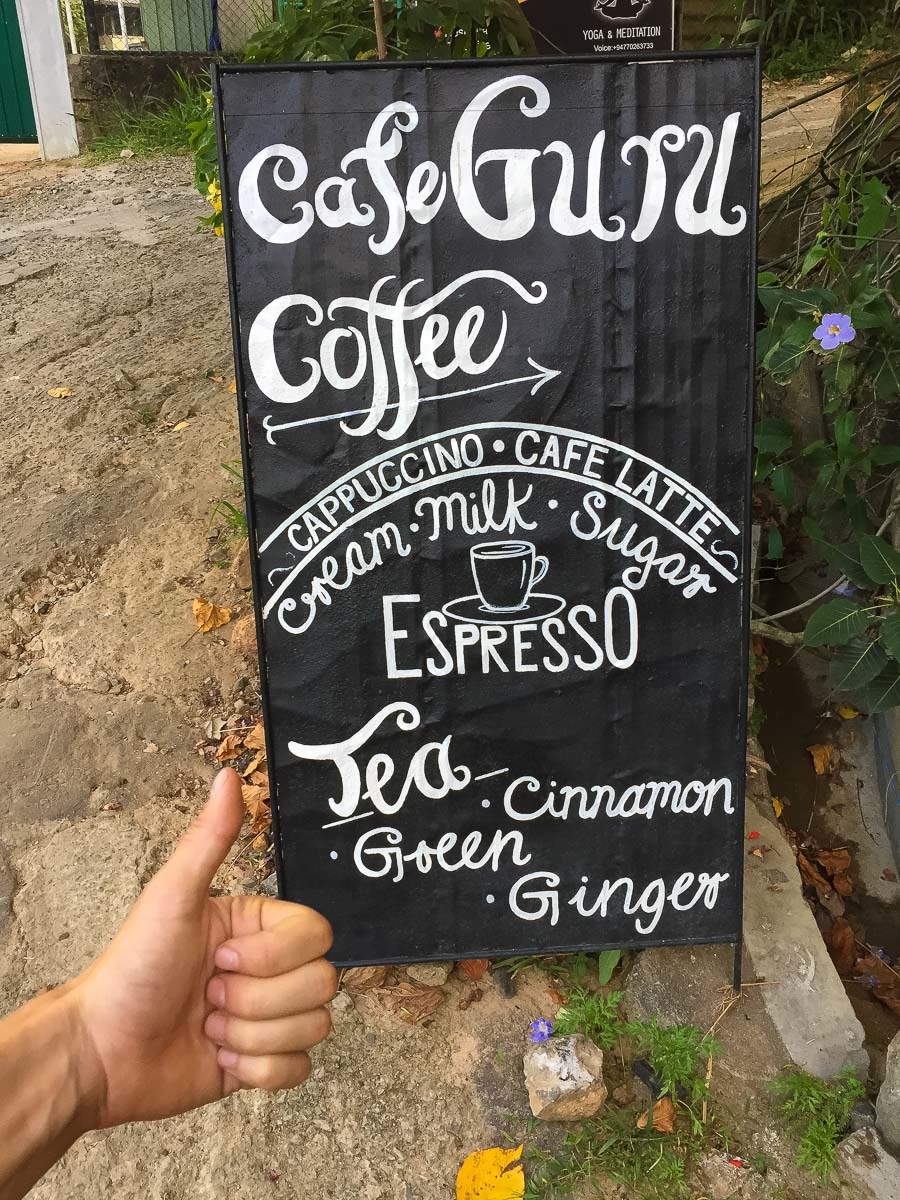 YOGA & MEDITATION
Voice:+94770263733
Cafe Guru
Coffee
CAPPUCCINO • CAFE LATTE
Cream • Milk • Sugar
ESPRESSO
Tea
• Cinnamon
• Green
• Ginger